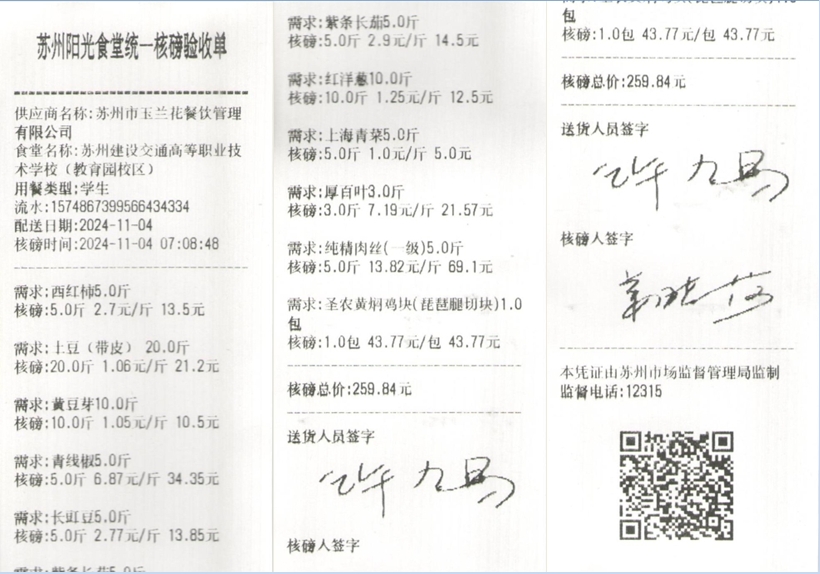 苏州阳光食堂统一核磅验收单
供应商名称:苏州市玉兰花餐饮管理
有限公司
食堂名称:苏州建设交通高等职业技
术学校（教育园校区）
用餐类型:学生
流水:1574867399566434334
配送日期:2024-11-04
核磅时间:2024-11-04 07:08:48
需求:西红柿5.0斤
核磅:5.0斤 2.7元/斤 13.5元
需求:土豆（带皮） 20.0斤
核磅:20.0斤 1.06元/斤 21.2元
需求:黄豆芽10.0斤
核磅:10.0斤 1.05元/斤 10.5元
需求:青线椒5.0斤
核磅:5.0斤 6.87元/斤 34.35元
需求:长豇豆5.0斤
核磅:5.0斤 2.77元/斤 13.85元
需求:紫条长茄5.0斤
需求:紫条长茄5.0斤
核磅:5.0斤 2.9元/斤 14.5元
需求:红洋葱10.0斤
核磅:10.0斤 1.25元/斤 12.5元
需求:上海青菜5.0斤
核磅:5.0斤 1.0元/斤 5.0元
需求:厚百叶3.0斤
核磅:3.0斤 7.19元/斤 21.57元
需求:纯精肉丝(一级)5.0斤
核磅:5.0斤 13.82元/斤 69.1元
需求:圣农黄焖鸡块(琵琶腿切块)1.0
包
核磅:1.0包 43.77元/包 43.77元
核磅总价:259.84元
送货人员签字
核磅人签字
包
核磅:1.0包 43.77元/包 43.77元
核磅总价:259.84元
送货人员签字
核磅人签字
本凭证由苏州市场监督管理局监制
监督电话:12315